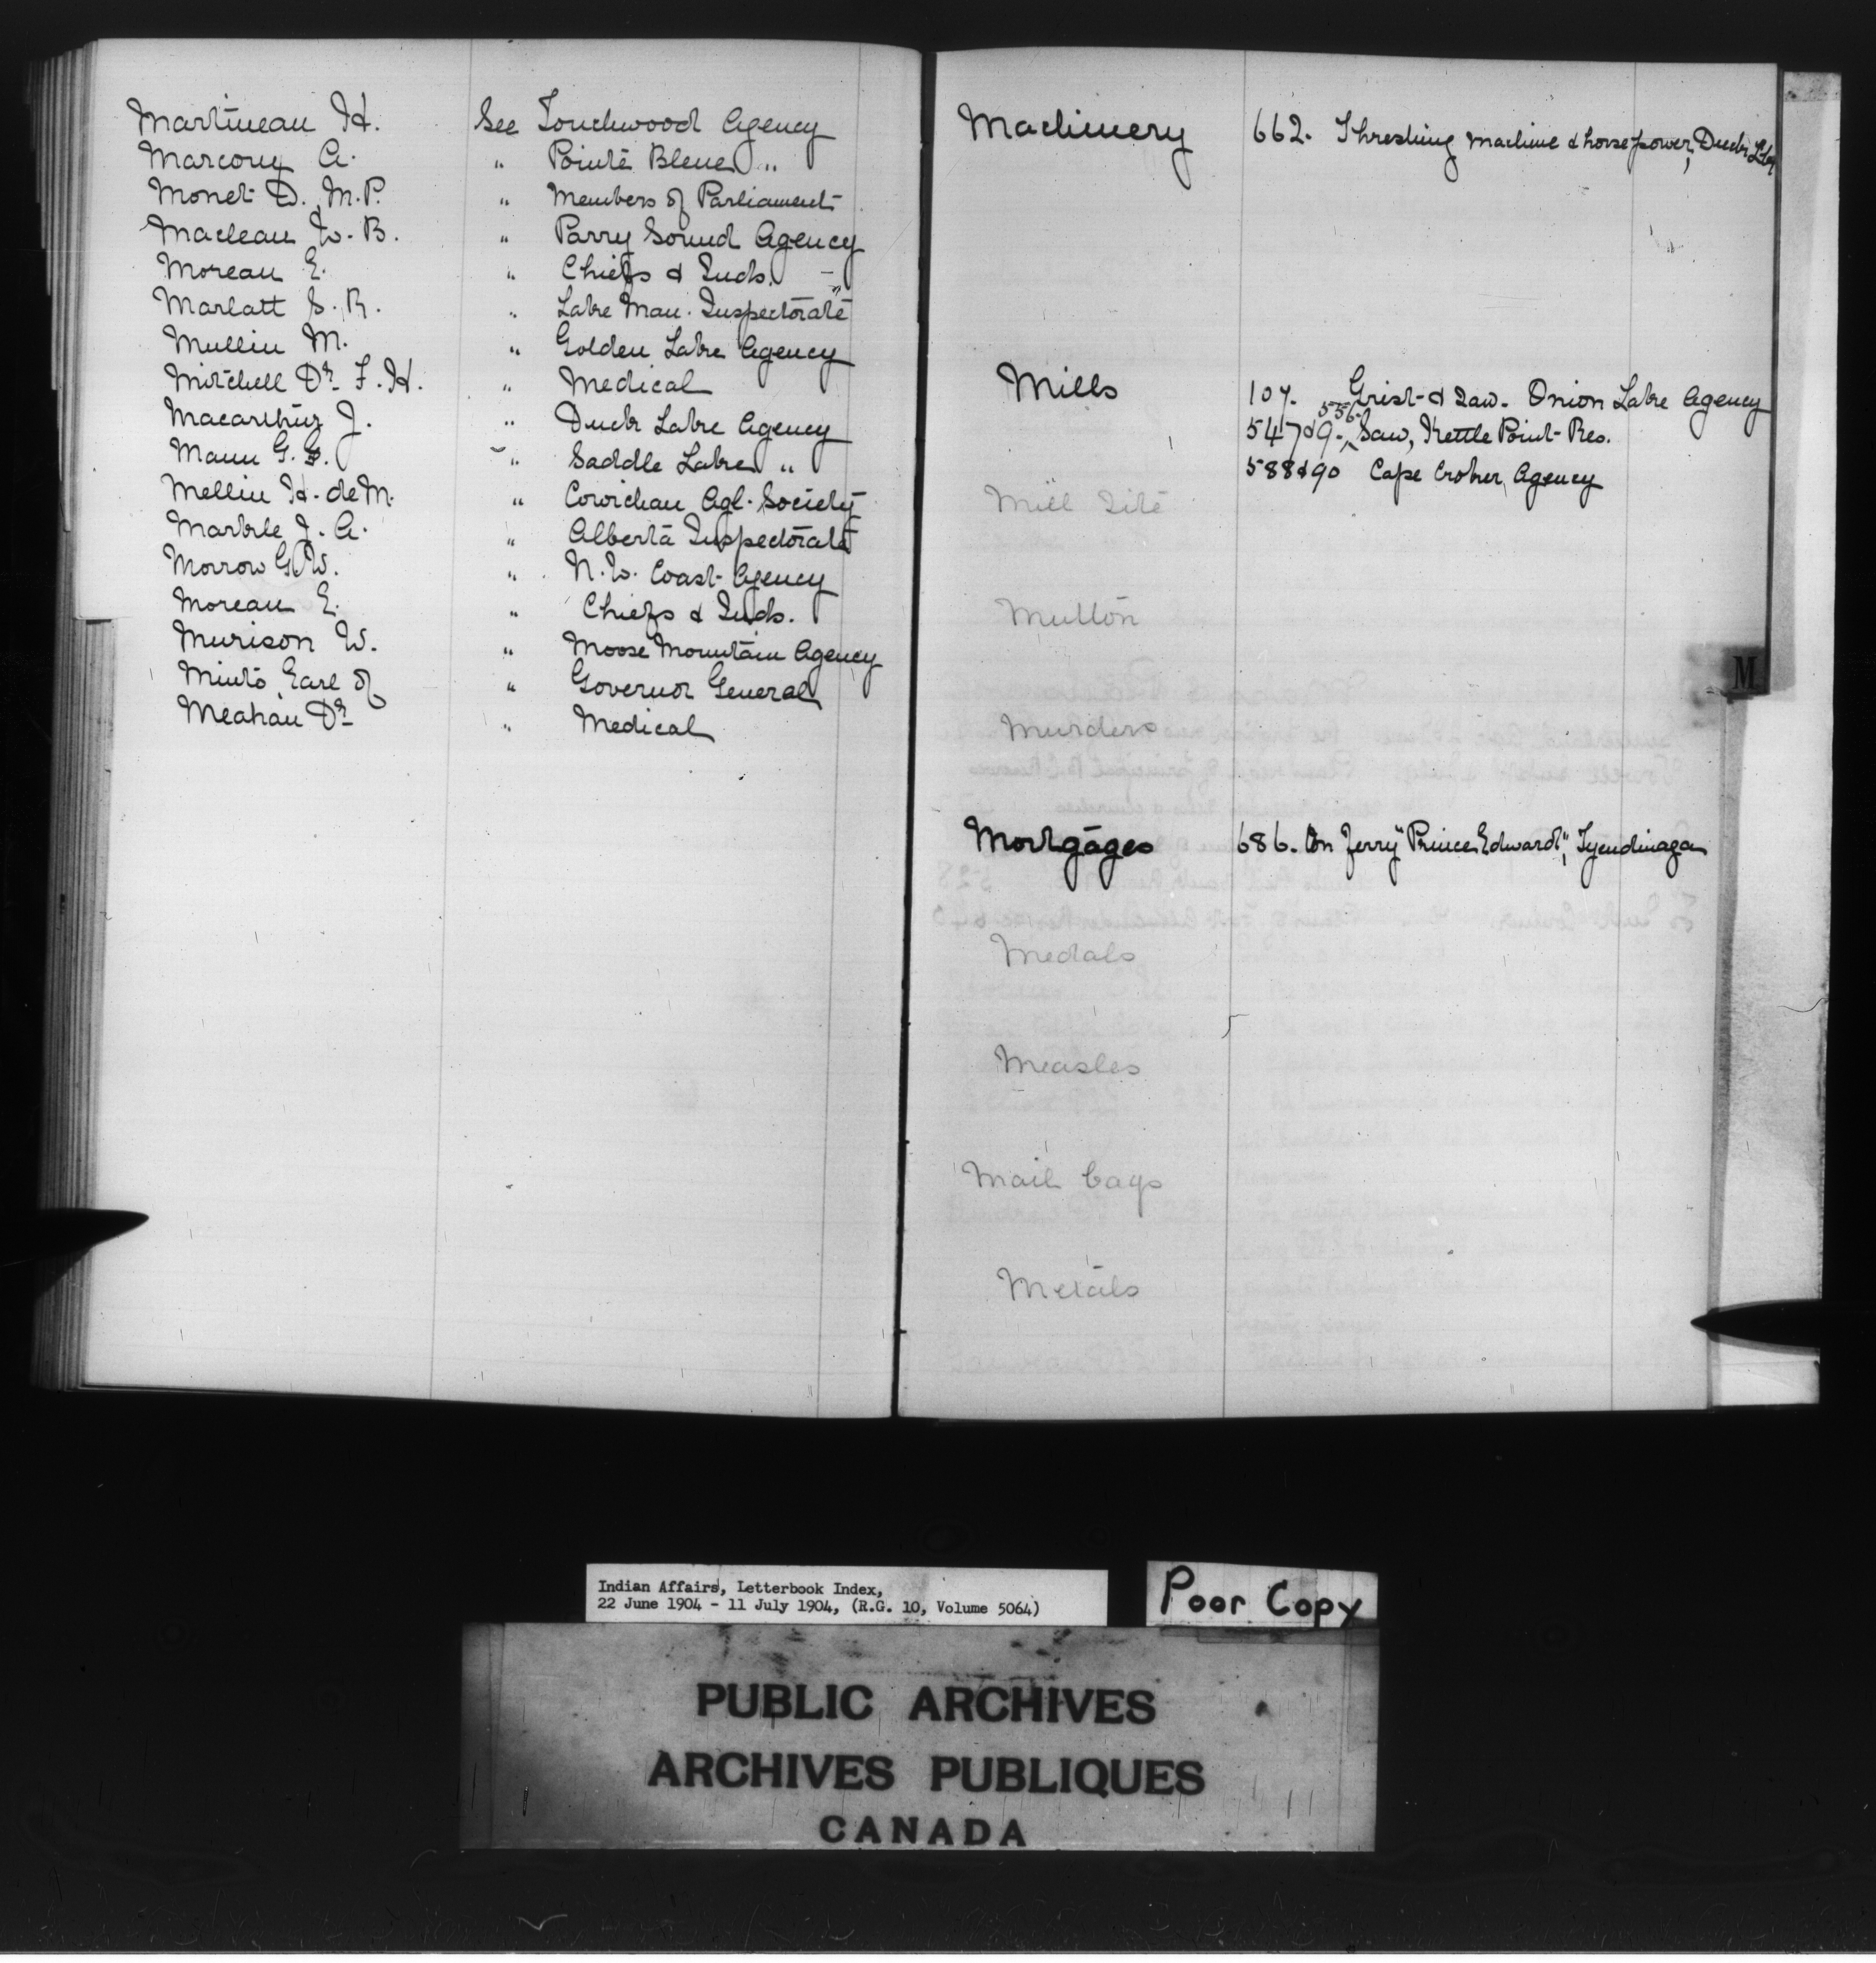 Martineau H. See Touchwood Agency
Marcouy A. " Pointe Bleue "
Monet D. M.P. " Members of Parliament
Maclean W. B. " Parry Sound Agency
Moreau E. " Chiefs & Inds. -
Marlatt S. R. " Lake Man. Inspectorate
Mullin M. " Golden Lake Agency
Mitchell Dr. F. H. " Medical
Macarthur J. " Duck Lake Agency
Mann G. G. " Saddle Lake "
Mellin H. de M. " Cowichan Agl. Society
Markle J. A. " Alberta Inspectorate
Morrow G. W. " N. W. Coast Agency
Moreau E. " Chiefs & Inds.
Murison W. " Moose Mountain Agency
Minto, Earl of " Governor General
Meahan Dr. " Medical
Machinery 662. Threshing machine & horse power, Duck
Mills 107. Grist & Saw. Onion Lake Agency
547 & 9. 556. Saw, Kettle Point Res.
588 & 90 Cape Croker Agency
Mill Site
Mutton
M
Murders
Mortgages 686. On Ferry "Prince Edward", Tyendinaga
Medals
Measles
Mail bags
Metals
Indian Affairs, Letterbook Index,
22 June 1904 - 11 July 1904, (R.G. 10, Volume 5064)
Poor Copy
PUBLIC ARCHIVES
ARCHIVES PUBLIQUES
CANADA